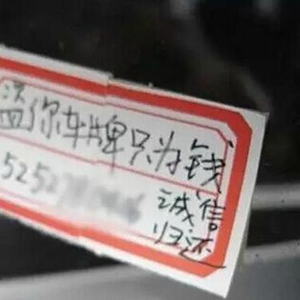 盗你车牌只为钱
诚信
归还